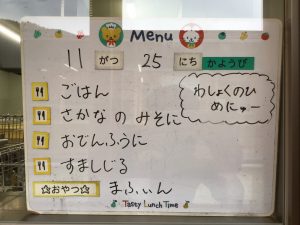 Menu
11 がつ 25 にち かようび
わしょくのひ
めにゅー
ごはん
さかなのみそに
おでんふうに
すましじる
☆おやつ☆ まふぃん
Tasty Lunch Time